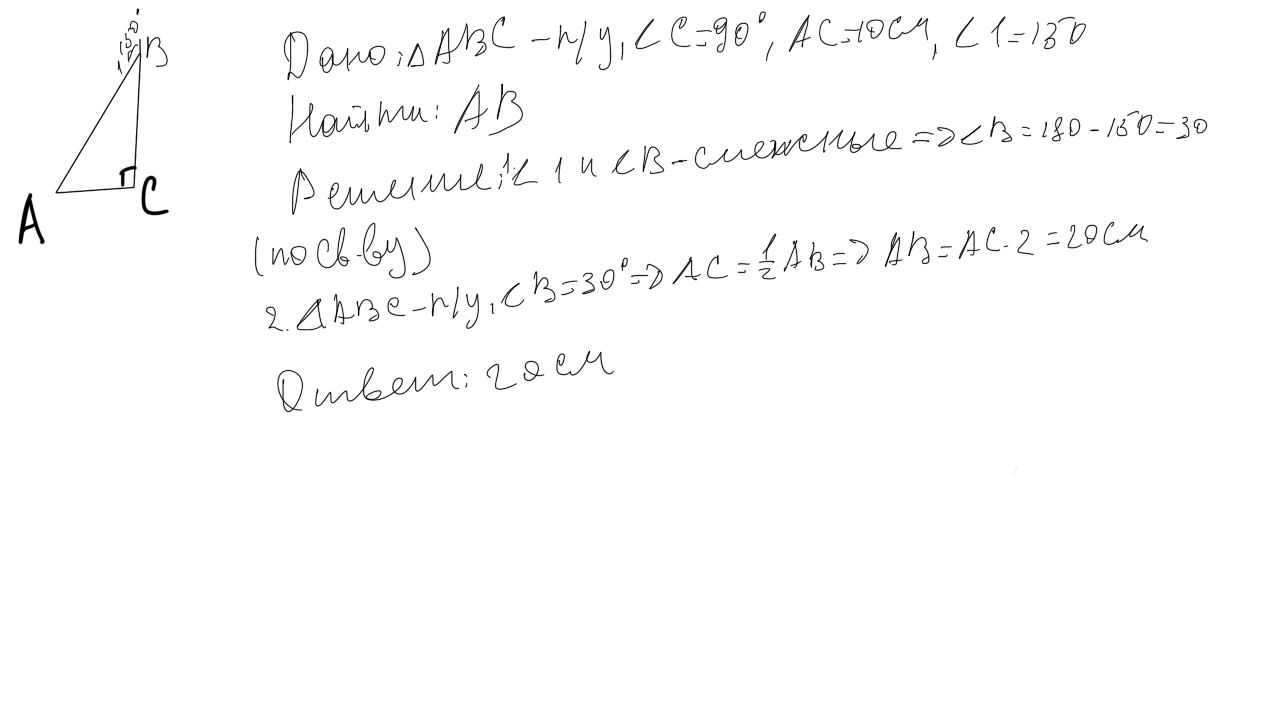 150°
1
B
A
C
Дано: △ ABC - п/у, ∠C=90°, AC=10см, ∠1=150
Найти: AB
Решение: 1. ∠1 и ∠B - смежные => ∠B = 180 - 150 = 30
(по св-ву)
2. △ABC - п/у, ∠B = 30° => AC = 1/2 AB => AB = AC · 2 = 20см
Ответ: 20см